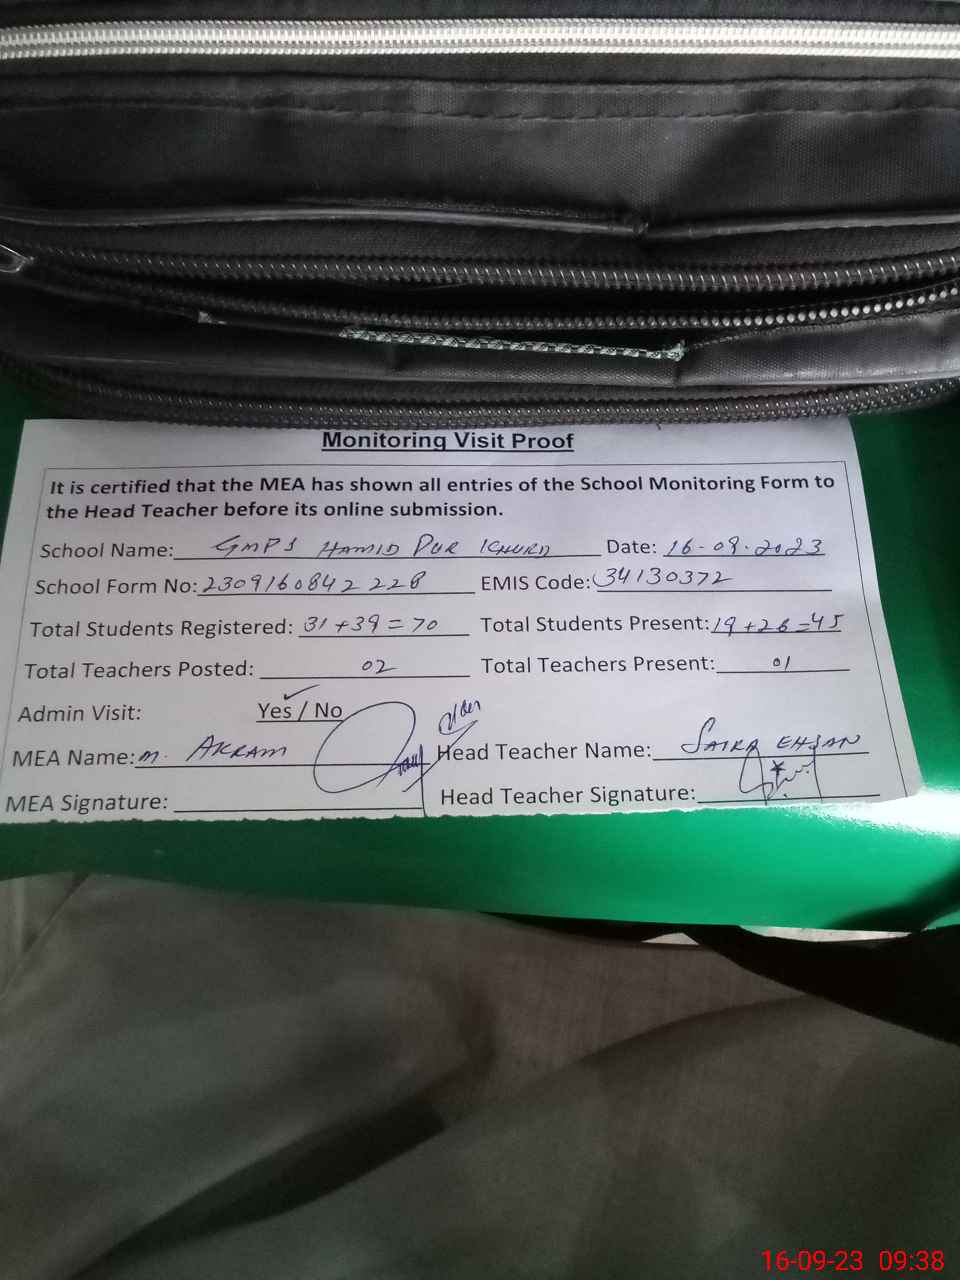 Monitoring Visit Proof
It is certified that the MEA has shown all entries of the School Monitoring Form to
the Head Teacher before its online submission.
School Name: GMPS HAMID PUR KHURD Date: 16-09-2023
School Form No: 2309160842228 EMIS Code: 34130372
Total Students Registered: 31+39=70 Total Students Present: 19+26=45
Total Teachers Posted: 02 Total Teachers Present: 01
Admin Visit: Yes / No
MEA Name: M. AKRAM Head Teacher Name: SAIRA EHSAN
MEA Signature: Head Teacher Signature:
16-09-23 09:38